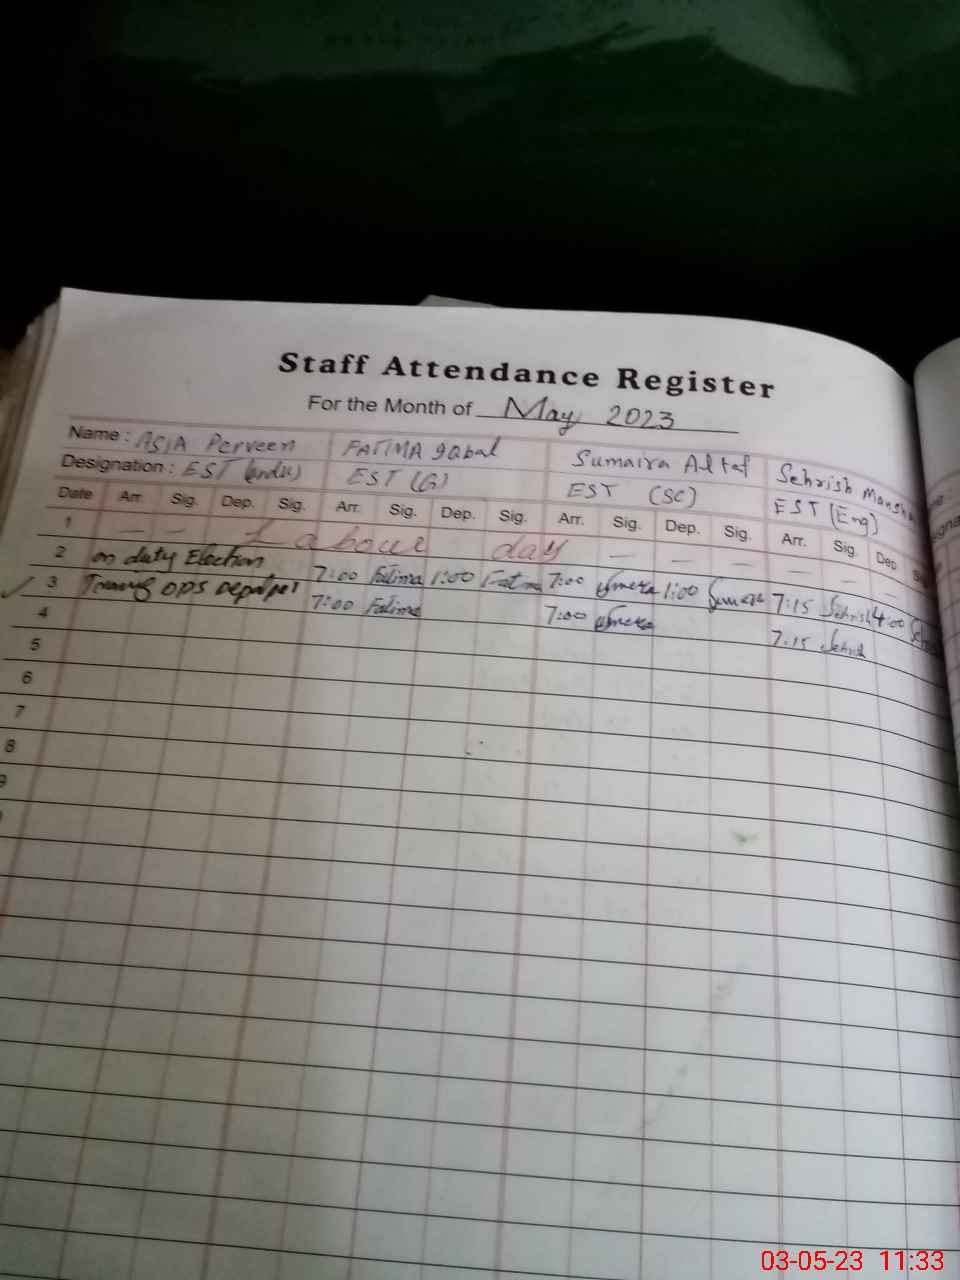 Staff Attendance Register
For the Month of May 2023
Name: ASIA Perveen FATIMA iqbal Sumaira Altaf Sehrish
Designation: EST (urdu) EST (G) EST (SC) EST (Eng)
Date Arr. Sig. Dep. Sig. Arr. Sig. Dep. Sig. Arr. Sig. Dep. Sig. Arr. Sig. Dep
1 Labour day
2 on duty Election 7:00 Fatima 1:00 Fatima 7:00 1:00 7:15 Sehrish 4:00
3 7:00 Fatima 7:00 7:15 Sehrish
4
5
6
7
8
9
03-05-23 11:33